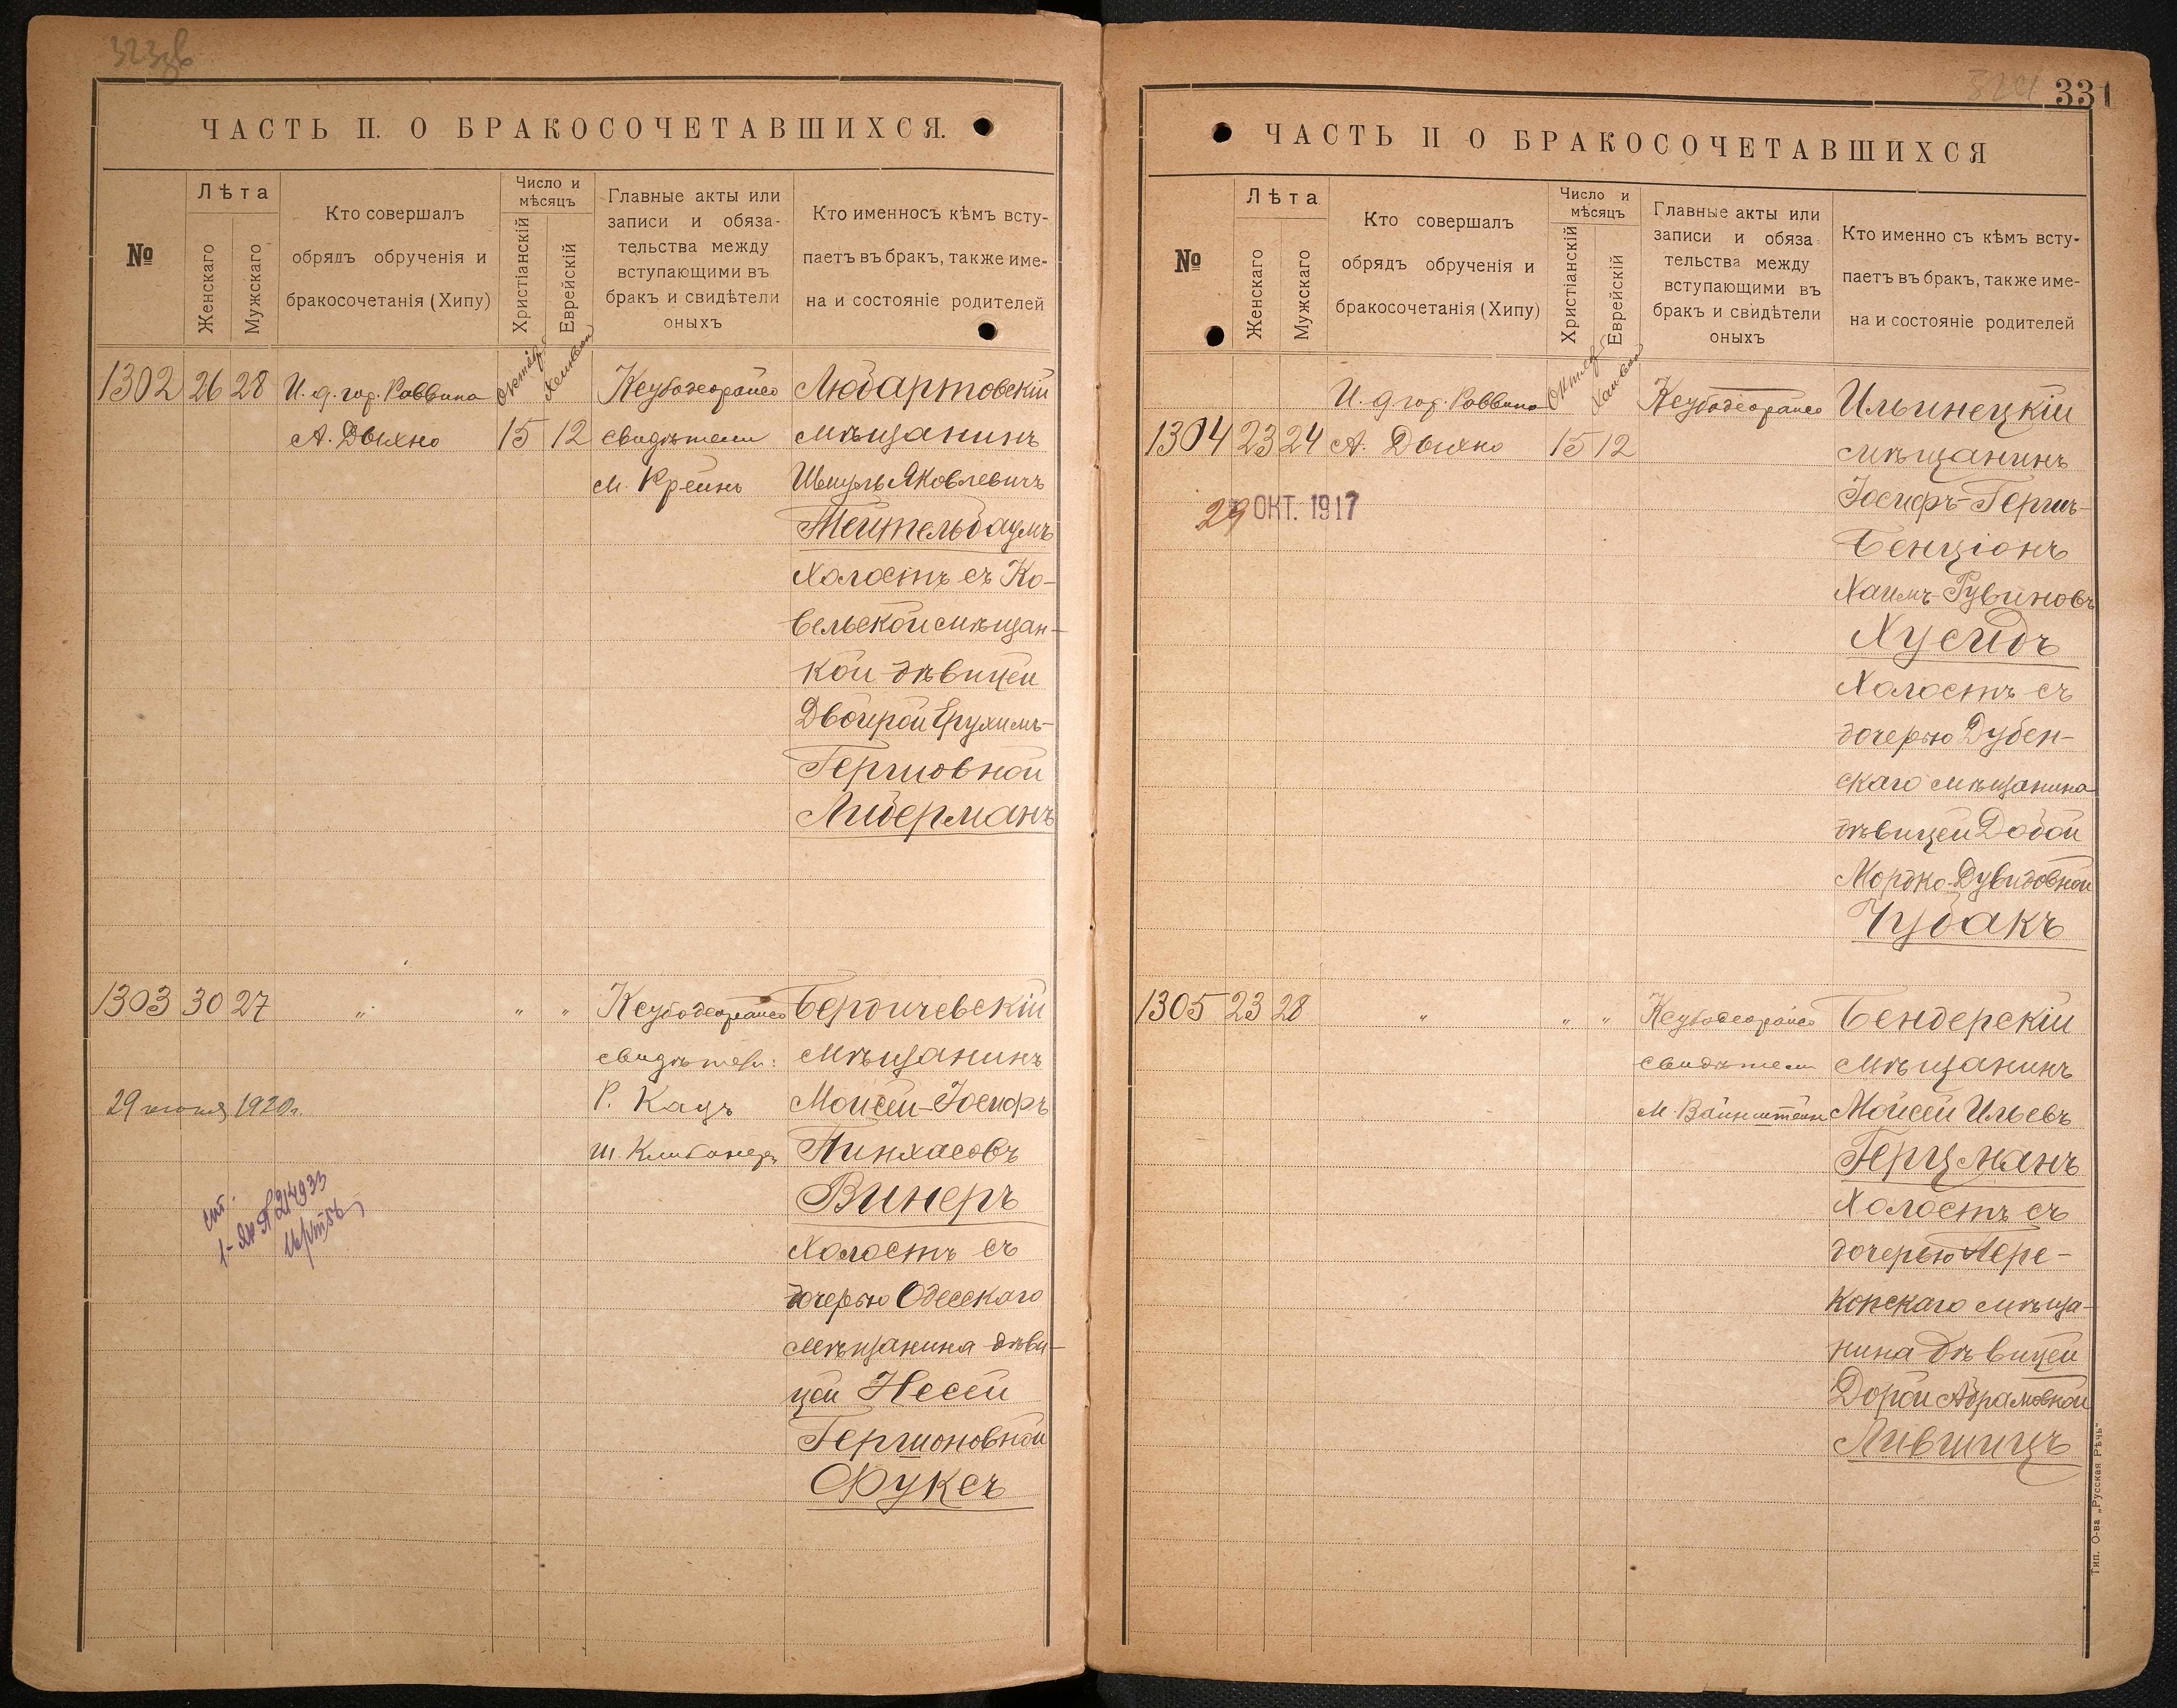 323об
ЧАСТЬ II. О БРАКОСОЧЕТАВШИХСЯ.
№
Лѣта
Женскаго
Мужскаго
Кто совершалъ
обрядъ обрученія и
бракосочетанія (Хипу)
Число и
мѣсяцъ
Христіанскій
Еврейскій
Главные акты или
записи и обяза-
тельства между
вступающими въ
бракъ и свидѣтели
оныхъ
Кто именносъ кѣмъ всту-
паетъ въ бракъ, также име-
на и состояніе родителей
Октября
1302 26 28 И. д. гор. Раввина Любартовскій
А. Дыхно 15 12 свидѣтели мѣщанинъ
М. Крейнъ Шмуль Яковлевичъ
Тейтельбаумъ
холостъ съ Ко-
вельской мѣщан-
кой дѣвицей
Двойрой Ерухимъ-
Гершовной
Либерманъ
1303 30 27 " " " Бердичевскій
свидѣтели: мѣщанинъ
29 1920г. Р. Кацъ Мойсей-Іосифъ
Ш. Пинхасовъ
Винеръ
холостъ съ
дочерью Одесскаго
мѣщанина дѣви-
цей Несей
Гершоновной
Фуксъ
1- № 214933
331
ЧАСТЬ II О БРАКОСОЧЕТАВШИХСЯ
№
Лѣта
Женскаго
Мужскаго
Кто совершалъ
обрядъ обрученія и
бракосочетанія (Хипу)
Число и
мѣсяцъ
Христіанскій
Еврейскій
Главные акты или
записи и обяза
тельства между
вступающими въ
бракъ и свидѣтели
оныхъ
Кто именно съ кѣмъ всту-
паетъ въ бракъ, также име-
на и состояніе родителей
И. д. гор. Раввина Ильинецкій
1304 23 24 А. Дыхно 15 12 мѣщанинъ
29 ОКТ. 1917 Іосифъ-Гершъ-
Бенціонъ
Хаимъ-Рувиновъ
Хусидъ
Холостъ съ
дочерью Дубен-
скаго мѣщанина
дѣвицей Добой
Мордко-Дувидовной
Чубакъ
1305 23 28 " " " Бендерскій
свидѣтели мѣщанинъ
М. Вайнштейнъ Мойсей Ильевъ
Герцманъ
Холостъ съ
дочерью Пере-
копскаго мѣща-
нина дѣвицей
Дорой Абрамовной
Лившицъ
Тип. О-ва „Русская Рѣчь"